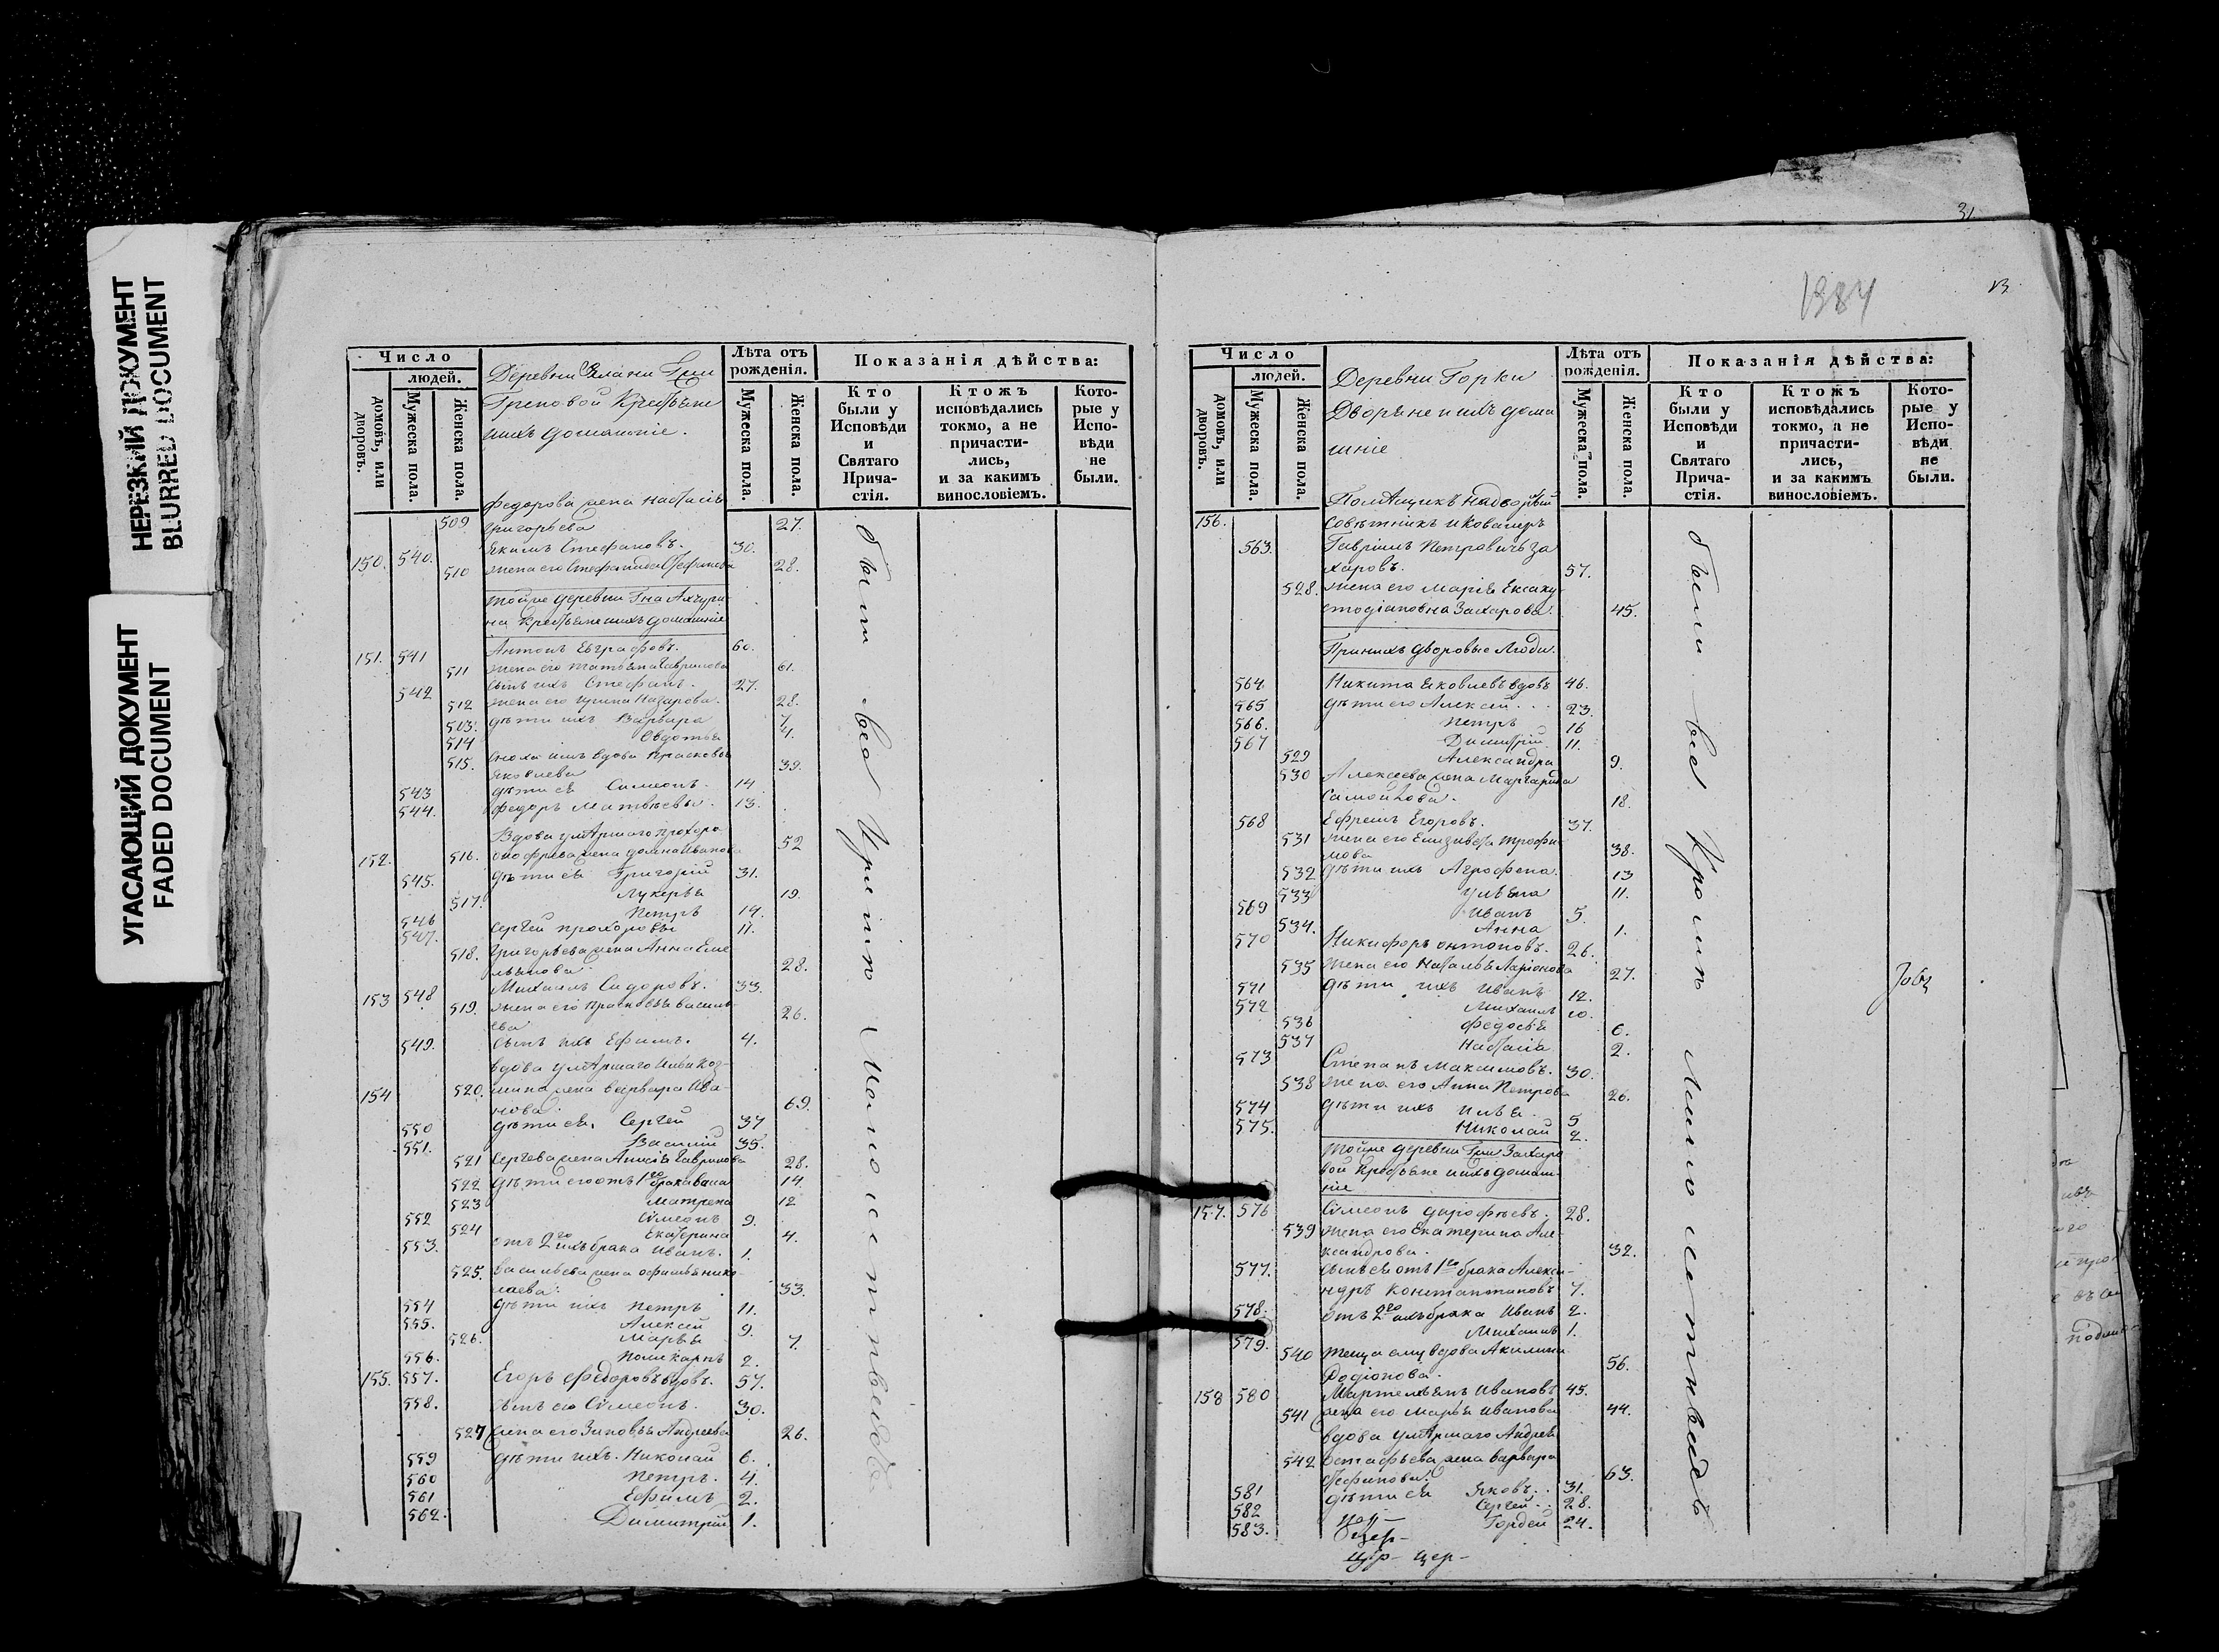 НЕРЕЗКИЙ ДОКУМЕНТ
BLURRED DOCUMENT
УГАСАЮЩИЙ ДОКУМЕНТ
FADED DOCUMENT
Число
людей.
домовъ, или дворовъ.
Мужеска пола.
Женска пола.
Деревни Елани Гжи
Греповой Крестьяне
ихъ домашніе.
Лѣта отъ рожденія.
Мужеска пола.
Женска пола.
Показанія дѣйства:
Кто были у Исповѣди и Святаго Причастія.
Ктожъ исповѣдались токмо, а не причастились, и за какимъ винословіемъ.
Которые у Исповѣди не были.
Федорова жена Настасія
509 Григорьева 27.
150. 540. Екимъ Стефановъ. 30.
510 жена его Стефанида 28.
тойже деревни Гна Ахчури
на Крестьяне ихъ домашніе
151. 541 Антонъ Евграфовъ. 60.
511 жена его Татьяна Гаврилова 61.
542 сынъ ихъ Стефанъ. 27.
512 жена его Ирина Назарова. 28.
513. дѣти ихъ Варвара 7.
514 Овдотья 4.
515. сноха ихъ вдова Прасковья
Яковлева 39.
543 дѣти ея Симеонъ. 14
544. Федоръ Матвѣевы. 13.
Вдова умершаго Прохора
152. 516. Онофріева жена Домна Иванова 52
545. дѣти ея Григорій 31.
517. Лукерья 19.
546 Петръ 14.
547. Сергей Прохоровы 11.
518. Григорьева жена Анна Еме
льянова 28.
153 548 Михаилъ Сидоровъ. 33.
519. жена его Прасковья Василь
ева 26.
549. сынъ ихъ Ефимъ. 4.
вдова умершаго Ильи Коз
154 520. мина жена Варвара Ива
нова. 69.
550 дѣти ея, Сергей 37
551. Василій 35.
521 Сергева жена Анисія Гаврилова 28.
522 дѣти его отъ 1го брака 14.
523 Матрена 12
552 Симеонъ 9.
524 Екатерина 4.
553. отъ 2го ихъ брака Иванъ. 1.
525. Васильева жена Офимья Нико
лаева: 33.
554 дѣти ихъ Петръ 11.
555. Алексей 9.
526. Марья 7.
556. Поликарпъ 2.
155. 557. Егоръ Федоровъ вдовъ. 57.
558. сынъ его Симеонъ. 30.
527 жена его Зиновья Андреева 26.
559 дѣти ихъ. Николай 6.
560 Петръ. 4.
561 Ефимъ 2.
562. Димитрій 1.
были все при
31
1984
Число
людей.
домовъ, или дворовъ.
Мужеска пола.
Женска пола.
Деревни Горки
Дворяне и ихъ дома
шніе
Лѣта отъ рожденія.
Мужеска пола.
Женска пола.
Показанія дѣйства:
Кто были у Исповѣди и Святаго Причастія.
Ктожъ исповѣдались токмо, а не причастились, и за какимъ винословіемъ.
Которые у Исповѣди не были.
Помѣщикъ Надворный
156. Совѣтникъ и Кавалеръ
563. Гавріилъ Петровичъ За
харовъ. 57.
528. жена его Марія Ексаку
стодіановна Захарова. 45.
При нихъ дворовые Люди.
564. Никита Яковлевъ вдовъ 46.
565 дѣти его Алексей 23.
566. Петръ 16
567 Димитрій. 11.
529 Александра 9.
530 Алексеева жена Маргарита
Самойлова. 18.
568 Ефремъ Егоровъ. 37.
531 жена его Елизавета Трофи
мова 38.
532 дѣти ихъ Агрофена 13
533 Ульяна 11.
569 Иванъ 5.
534. Анна 1.
570 Никифоръ Антоновъ. 26.
535 жена его Наталья Ларіонова 27.
571 дѣти ихъ Иванъ 12.
572 Михаилъ 10.
536 Федосья 6.
537 Настасія 2.
573 Степанъ Максимовъ. 30.
538 жена его Анна Петрова 26.
574 дѣти ихъ Илья 5
575. Николай 2.
тойже деревни Гжи Захаро
вой Крестьяне и ихъ домаш
ніе
157. 576 Симеонъ Дорофѣевъ. 28.
539 жена его Екатерина Але
ксандрова. 32.
577. сынъ ея отъ 1го брака Алекса
ндръ Константиновъ 7.
578. отъ 2го ихъ брака Иванъ 2.
579. Михаилъ 1.
540 теща ему вдова Акилина
Родіонова. 56.
158 580 Мартемьянъ Ивановъ 45.
541 жена его Марья Иванова 44.
вдова умершаго Андрея
542 Остафьева жена Варвара
Стефанова. 63.
581 дѣти ея Яковъ 31.
582 Сергей 28.
583. Гордей 24.
были все